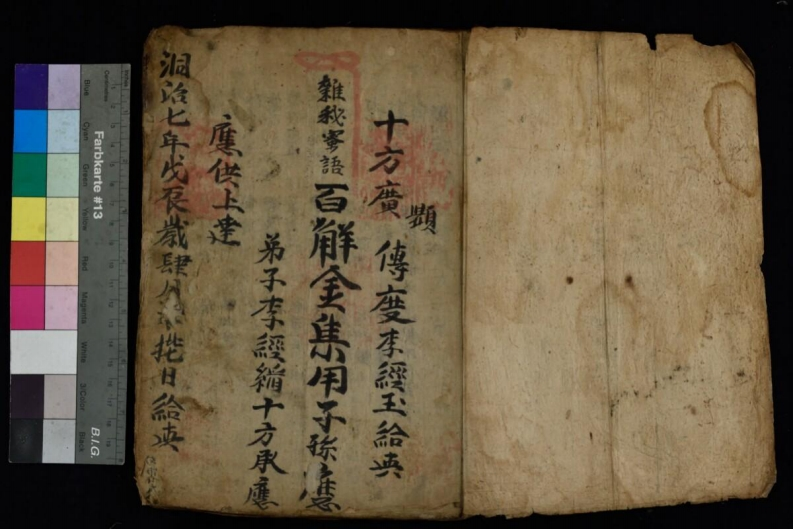 十方廣顯 傳度李經玉給典
雜秘密語 百解金集用子孫應
弟子李經 十方承應
應供上達
洞治七年戊辰歲肆月 日給典
Farbkarte #13
B.I.G.
Centimetres
Blue
Cyan
Green
Yellow
Red
Magenta
White
3/Color
Black